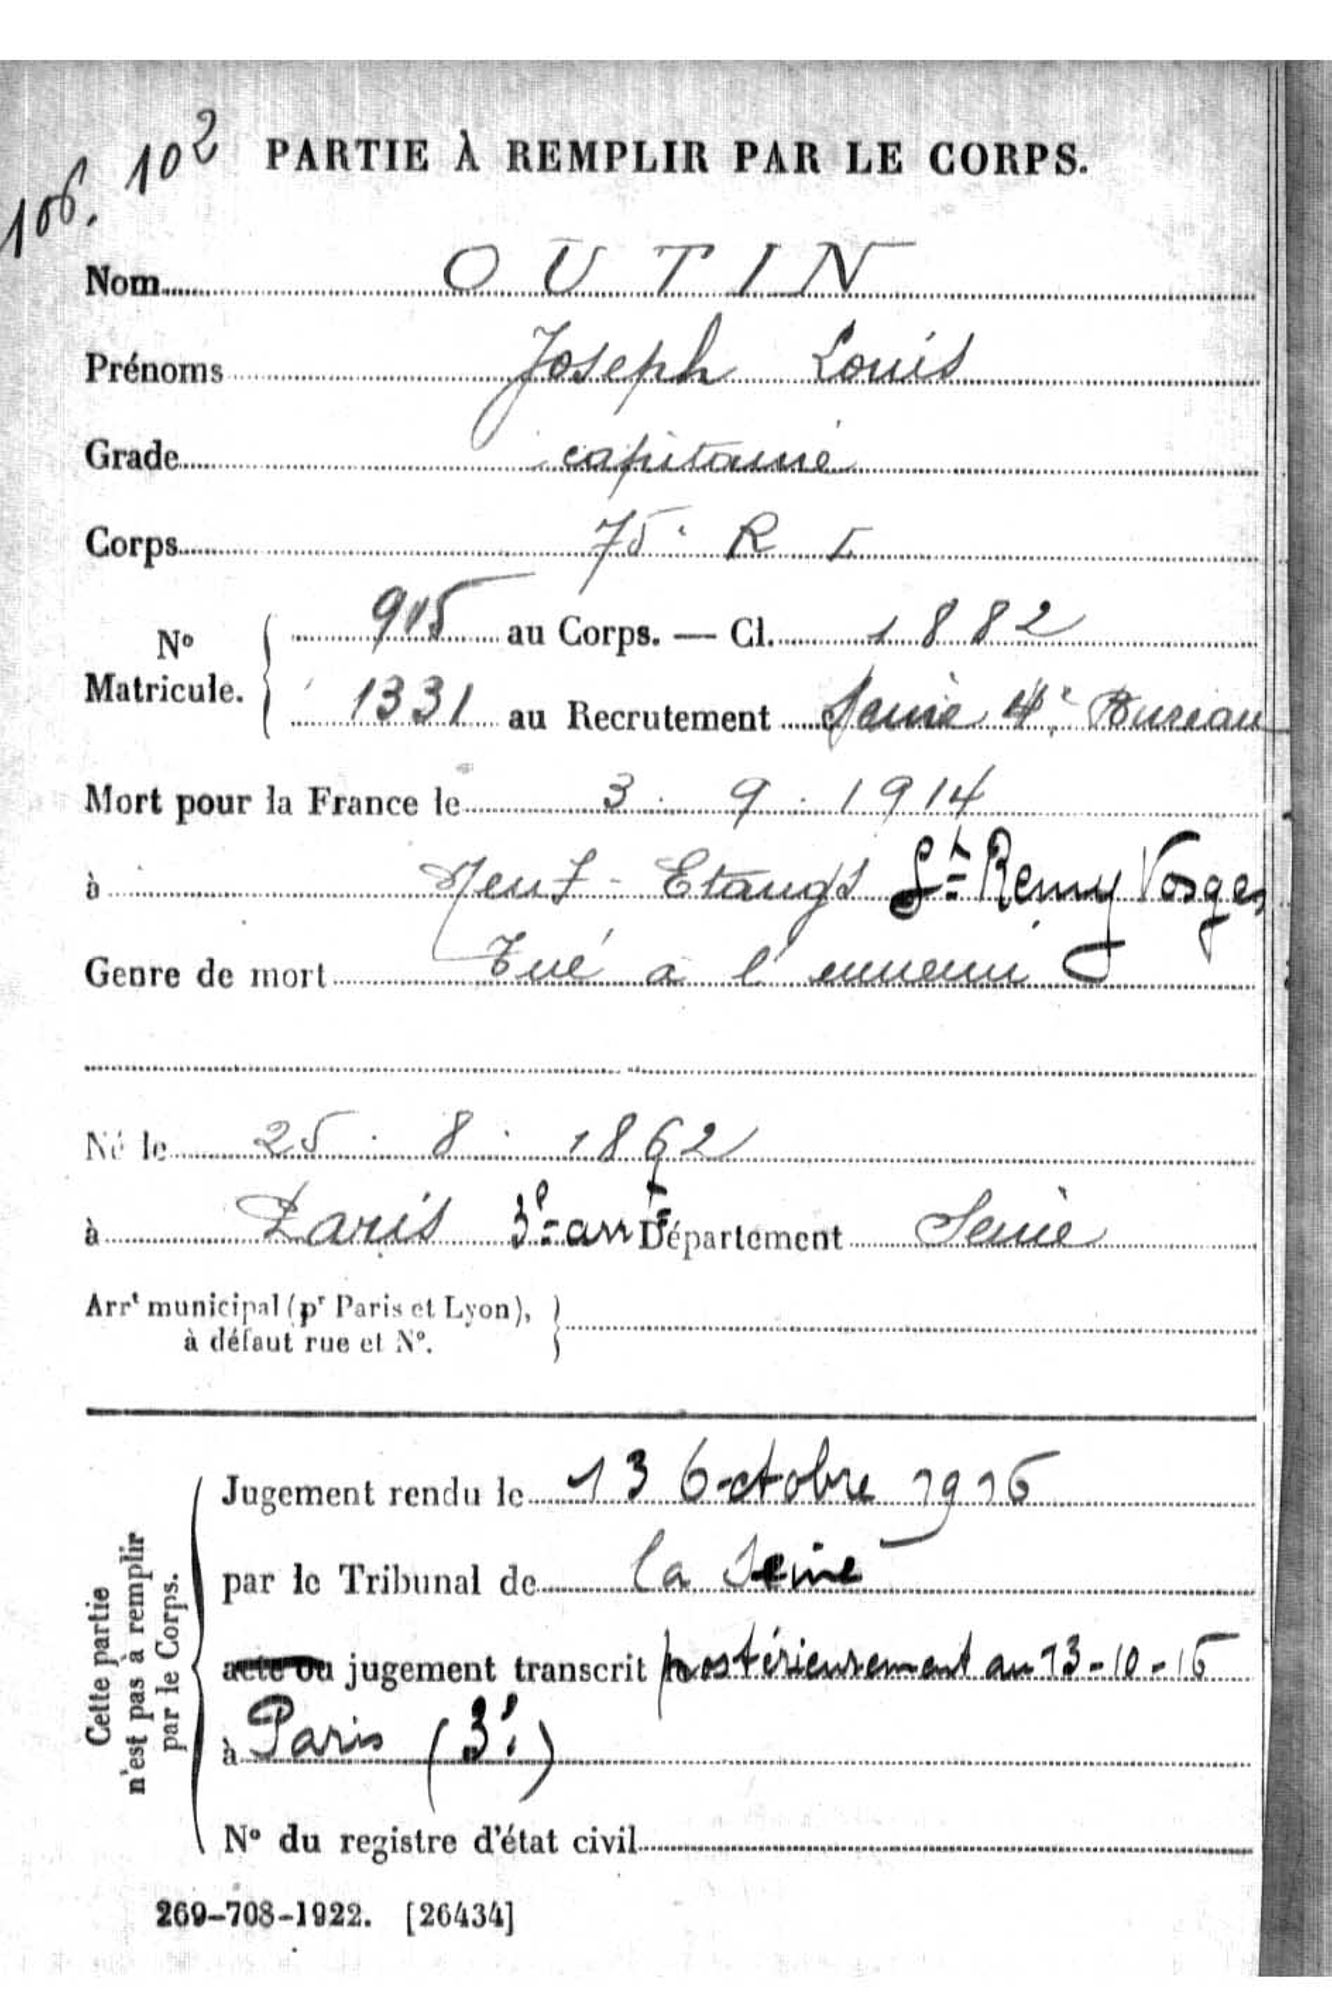 106. 102
PARTIE À REMPLIR PAR LE CORPS.
Nom OUTIN
Prénoms Joseph Louis
Grade capitaine
Corps 75e R I
No Matricule. 915 au Corps. — Cl. 1882
1331 au Recrutement Seine 4e Bureau
Mort pour la France le 3 . 9 . 1914
à Neuf-Etangs St Remy Vosges
Genre de mort Tué à l'ennemi
Né le 25 . 8 . 1862
à Paris 3e arrt Département Seine
Arrt municipal (pr Paris et Lyon),
à défaut rue et No.
Cette partie
n'est pas à remplir
par le Corps.
Jugement rendu le 13 Octobre 1916
par le Tribunal de la Seine
acte ou jugement transcrit postérieurement au 13-10-16
à Paris (3e)
No du registre d'état civil
269-708-1922. [26434]